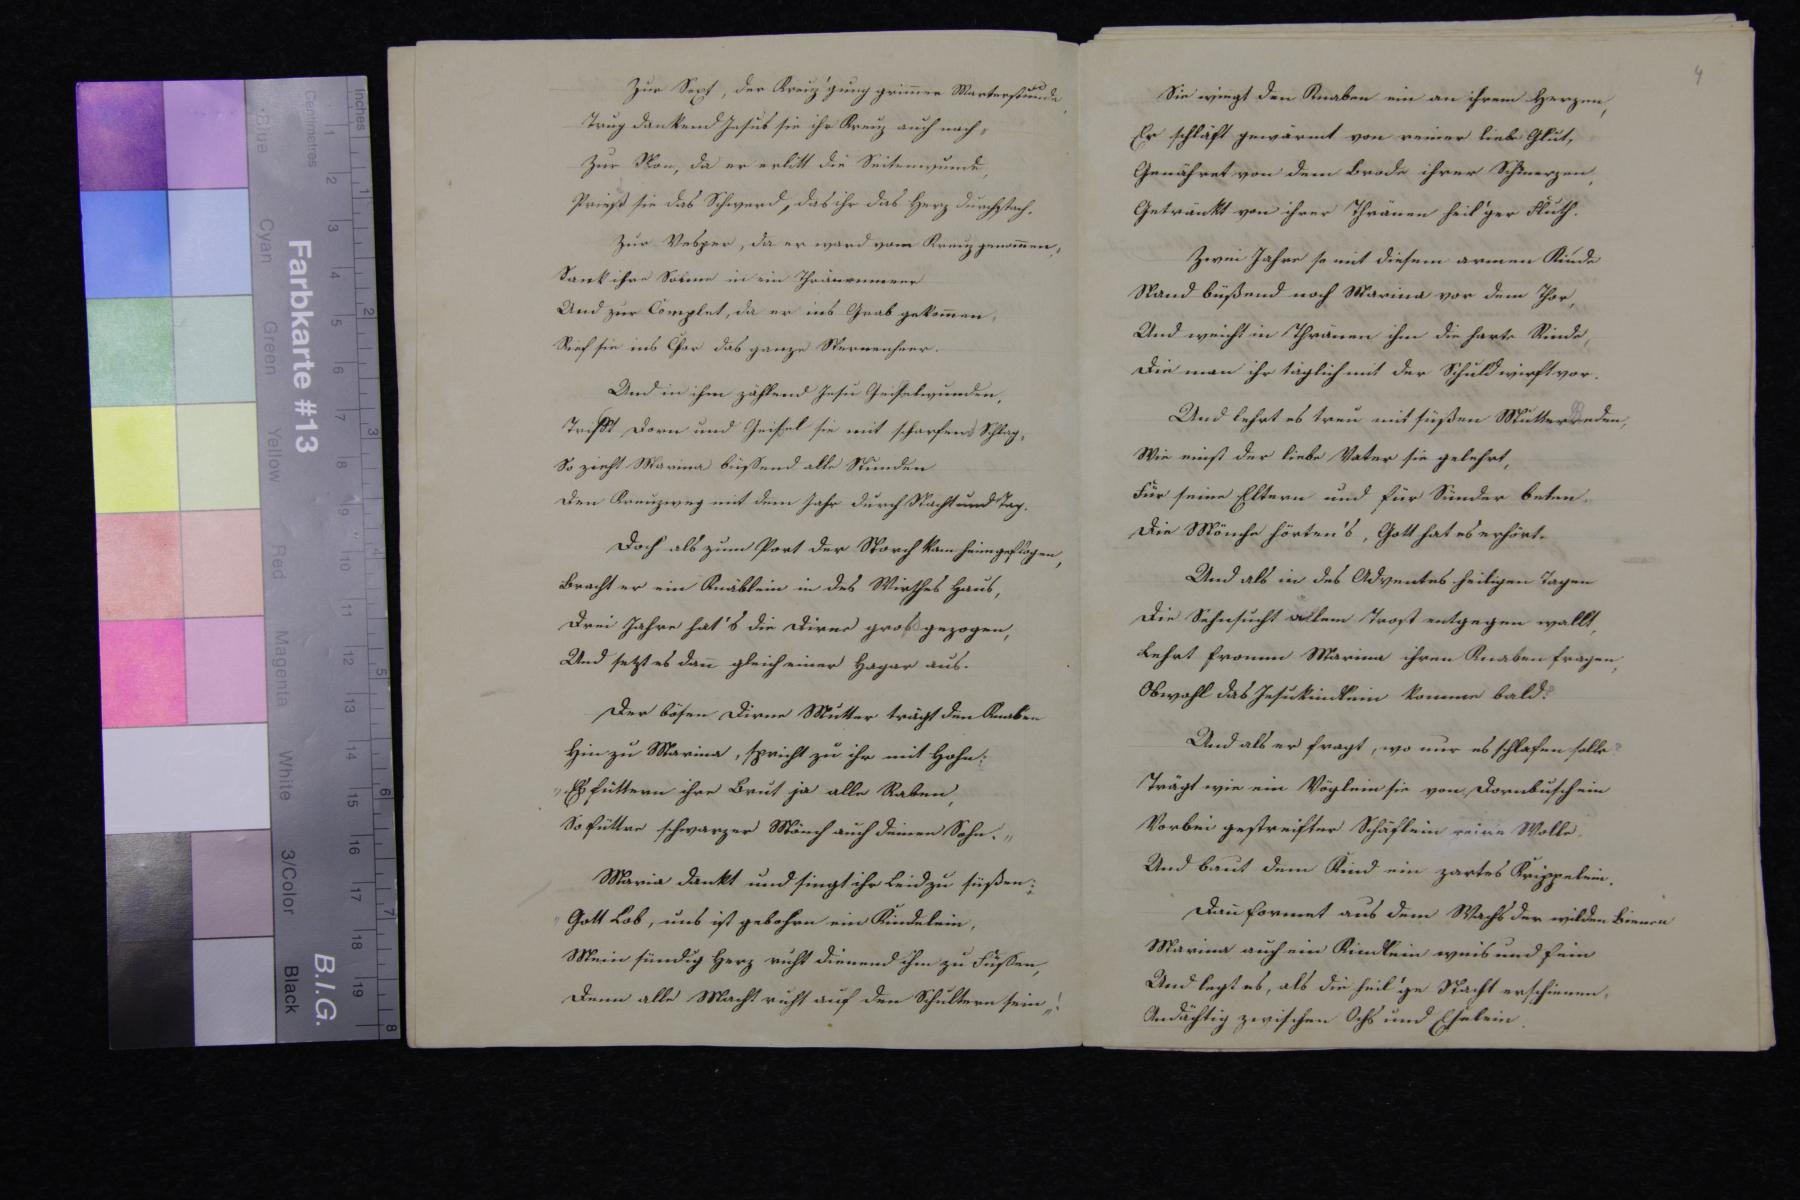 Zur Sext, der Kreuz'gung grimer Marterstunde,
Trug dankend Jesus sie ihr Kreuz auch nach,
Zur Non, da er erlitt die Seitenwunde,
Prießt sie das Schwerd, das ihr das Herz durchstach.
Zur Vesper, da er ward vom Kreuz genom̅en,
Sank ihre Sonne in ein Thränenmeer
Und zur Complet, da er ins Grab gekom̅en,
Rief sie ins Chor das ganze Sternenheer.
Und in ihm zählend Jesu Geiselwunden,
Trifft Dorn und Geisel sie mit scharfem Schlag,
So zieht Marina büssend alle Stunden
Den Kreuzweg mit dem Jahr durch Nacht und Tag.
Doch als zum Port der Storch kam heimgeflogen,
Bracht er ein Knäblein in des Wirthes Haus,
Drei Jahre hat's die Dirne gros gezogen,
Und setzt es dan̅ gleich einer Hagar aus.
Der bösen Dirne Mutter trägt den Knaben
Hin zu Marina, spricht zu ihr mit Hohn:
„Es füttern ihre Brut ja alle Raben,
So füttre schwarzer Mönch auch deinen Sohn."
Maria dankt und singt ihr Leid zu süßen:
„Gott Lob, uns ist gebohren ein Kindelein,
Mein sündig Herz ruht dienend ihm zu Füssen,
Denn alle Macht ruht auf den Schultern sein"!
4
Sie wiegt den Knaben ein an ihrem Herzen,
Er schläft gewärmt von reiner Liebe Glut,
Genähret von dem Brode ihrer Schmerzen,
Getränkt von ihrer Thränen heil'ger Fluth.
Zwei Jahre so mit diesem armen Kinde
Stand büßend noch Marina vor dem Thor,
Und weicht in Thränen ihm die harte Rinde,
Die man ihr täglich mit der Schuld wirft vor.
Und lehrt es treu mit süßen Mutterreden,
Wie einst der liebe Vater sie gelehrt,
Für seine Eltern und für Sünder beten.
Die Mönche hörten's, Gott hat es erhört.
Und als in des Adventes heiligen Tagen
Die Sehnsucht allem Trost entgegen wallt,
Lehrt fromm Marina ihren Knaben fragen,
Obwohl das Jesukindlein komme bald?
Und als er fragt, wo nur es schlafen solle?
Trägt wie ein Vöglein sie von Dornbusch ein
Vorbei gestreifter Schäflein reine Wolle,
Und baut dem Kind ein zartes Krippelein.
Dan̅ formet aus dem Wachs der wilden Bienen
Marina auch ein Kindlein weis und fein
Und legt es, als die heil'ge Nacht erschienen,
Andächtig zwischen Ochs und Eselein.
Farbkarte #13
B.I.G.
Inches
Centimetres
1 2 3 4 5 6 7 8 9 10 11 12 13 14 15 16 17 18 19
1 2 3 4 5 6 7 8
Blue
Cyan
Green
Yellow
Red
Magenta
White
3/Color
Black